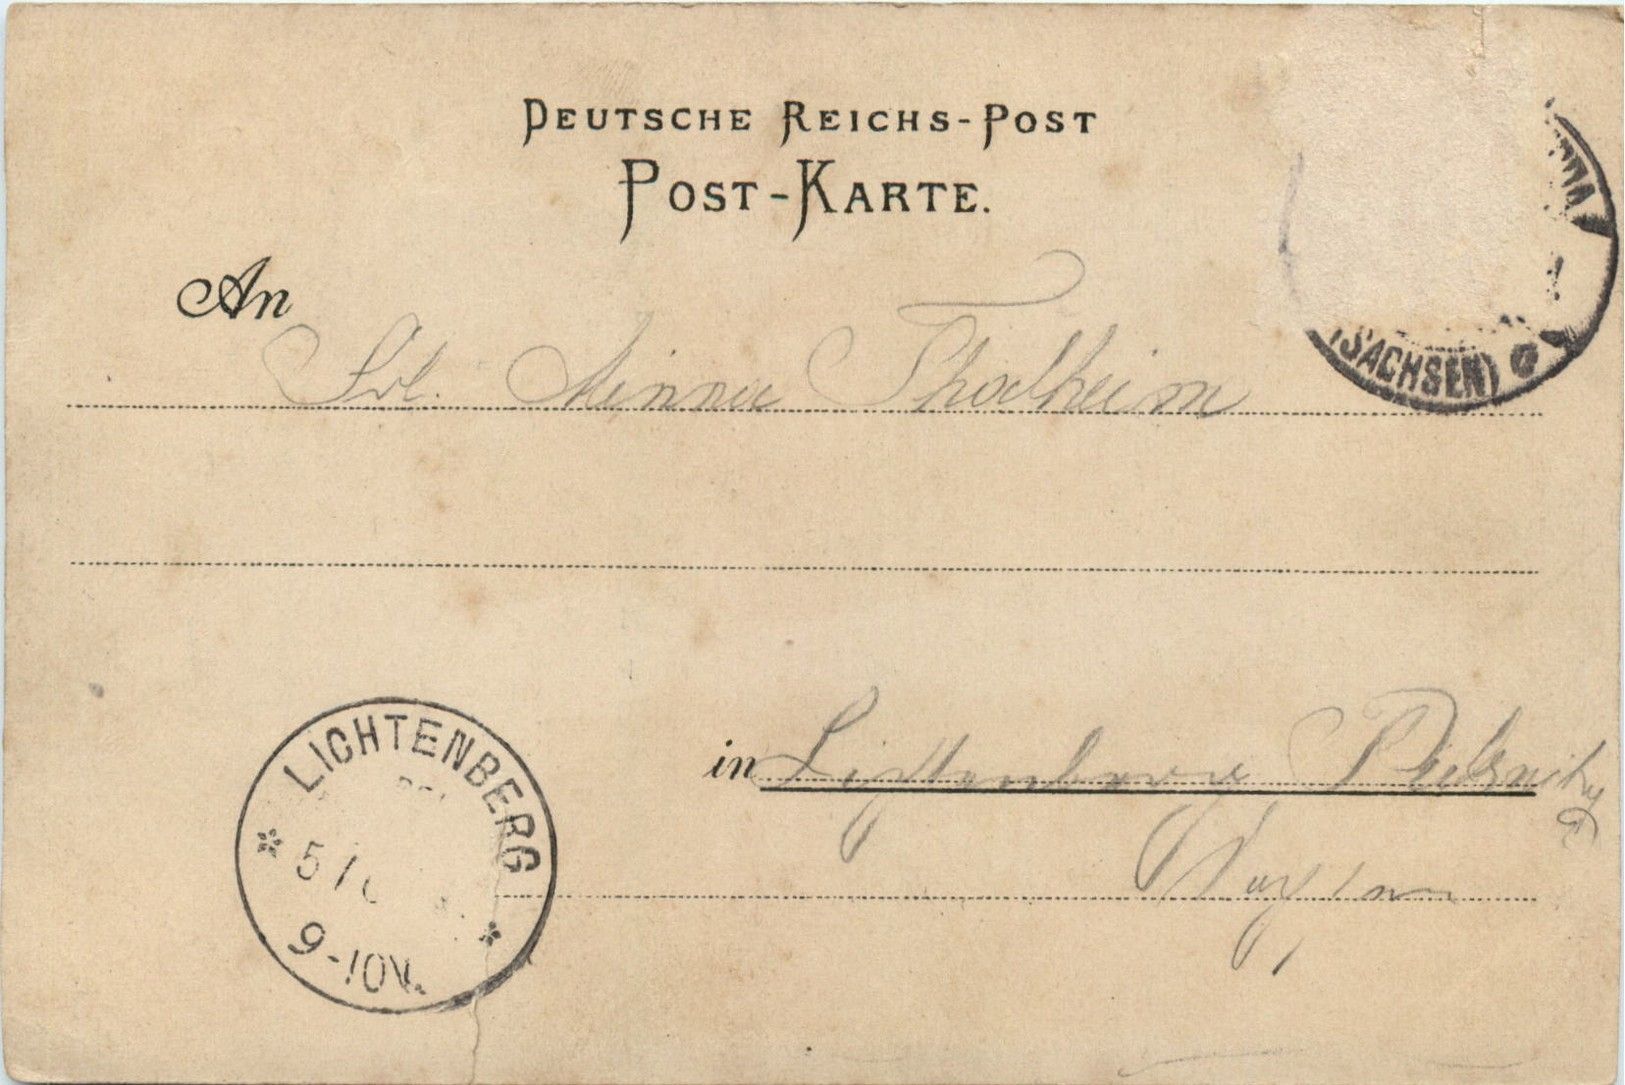 DEUTSCHE REICHS-POST
POST-KARTE.
An Frl. Minna Thalheim
(SACHSEN)
in Lichtenberg Pulsnitz
Sachsen
LICHTENBERG
5/
9-10V.